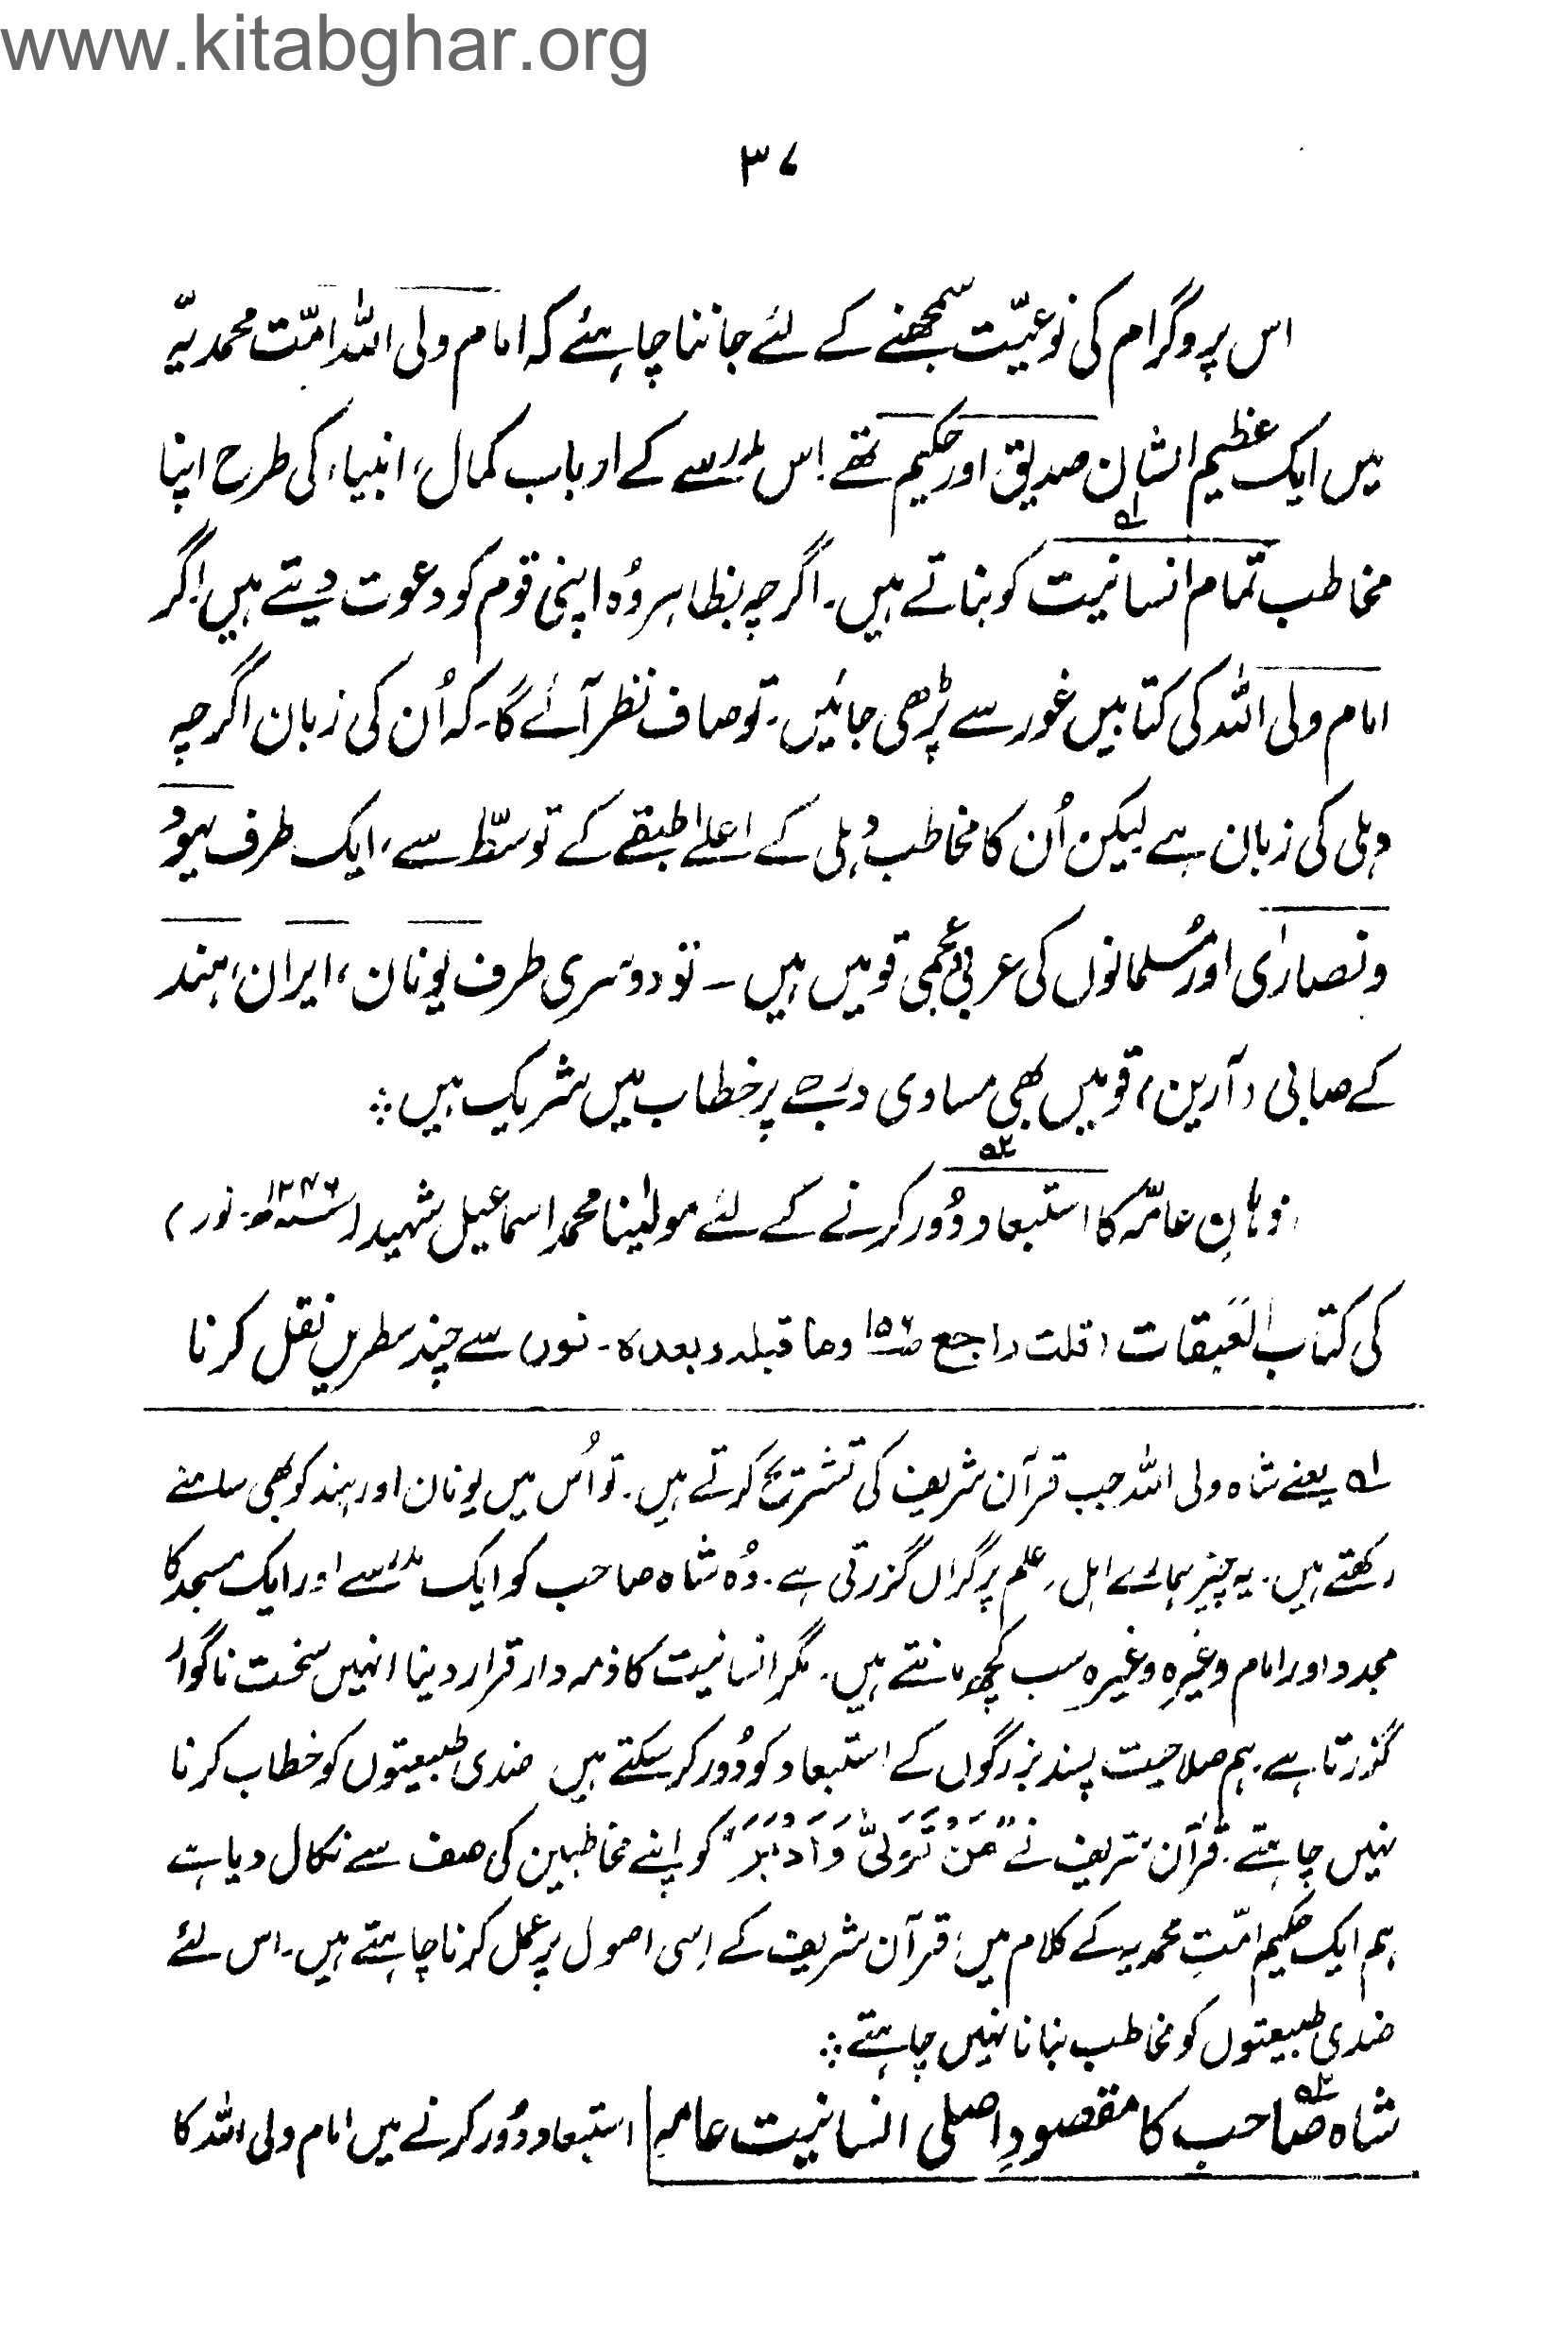 www.kitabghar.org
۳۷
اس پروگرام کی نوعیّت سمجھنے کے لئے جاننا چاہئے کہ امام ولی اللہ امّت محمدیّہ
میں ایک عظیم الشان صدیق اور حکیم تھے۔ اس مدرسے کے ارباب کمال، انبیاء کی طرح اپنا
مخاطب تمام انسانیت کو بناتے ہیں۔ اگرچہ بظاہر وُہ اپنی قوم کو دعوت دیتے ہیں۔ اگر
امام ولی اللہ کی کتابیں غور سے پڑھی جائیں۔ تو صاف نظر آئے گا۔ کہ اُن کی زبان اگرچہ
دہلی کی زبان ہے لیکن اُن کا مخاطب دہلی کے اعلےٰ طبقے کے توسّط سے، ایک طرف یہود
و نصاریٰ اور مُسلمانوں کی عربی و عجمی قومیں ہیں – تو دوسری طرف یونان، ایران، ہند
کے صابی (آرین) قومیں بھی مساوی درجے پر خطاب میں شریک ہیں ⁘
اذہانِ عامّہ کا استبعاد دُور کرنے کے لئے ۵۲ مولٰینا محمد اسماعیل شہید (۱۲۴۶ھ۔ نور)
کی کتاب العَبَقات (قلت راجع ص۱۵۶ وما قبلہ وبعدہ۔ نور) سے چند سطریں نقل کرنا
۵۱ یعنے شاہ ولی اللہ جب قرآن شریف کی تشریح کرتے ہیں۔ تو اُس میں یونان اور ہند کو بھی سامنے
رکھتے ہیں۔ یہ چیز ہمارے اہلِ علم پر گراں گزرتی ہے۔ وُہ شاہ صاحب کو ایک مدرسے اور ایک مسجد کا
مجدد اور امام وغیرہ وغیرہ سب کچھ مانتے ہیں۔ مگر انسانیت کا ذمہ دار قرار دینا انہیں سخت ناگوار
گزرتا ہے۔ ہم صلاحیت پسند بزرگوں کے استبعاد کو دُور کر سکتے ہیں ضدی طبیعتوں کو خطاب کرنا
نہیں چاہتے۔ قرآن شریف نے "مَنْ تَوَلّٰی وَاَدْبَرَ" کو اپنے مخاطبین کی صف سے نکال دیا ہے
ہم ایک حکیمِ امّتِ محمدیہ کے کلام میں، قرآن شریف کے اِسی اصول پر عمل کرنا چاہتے ہیں۔ اس لئے
ضدی طبیعتوں کو مخاطب بنانا نہیں چاہتے ⁘
۵۲ شاہ صاحب کا مقصودِ اصلی انسانیت عامہ استبعاد دُور کرنے میں امام ولی اللہ کا